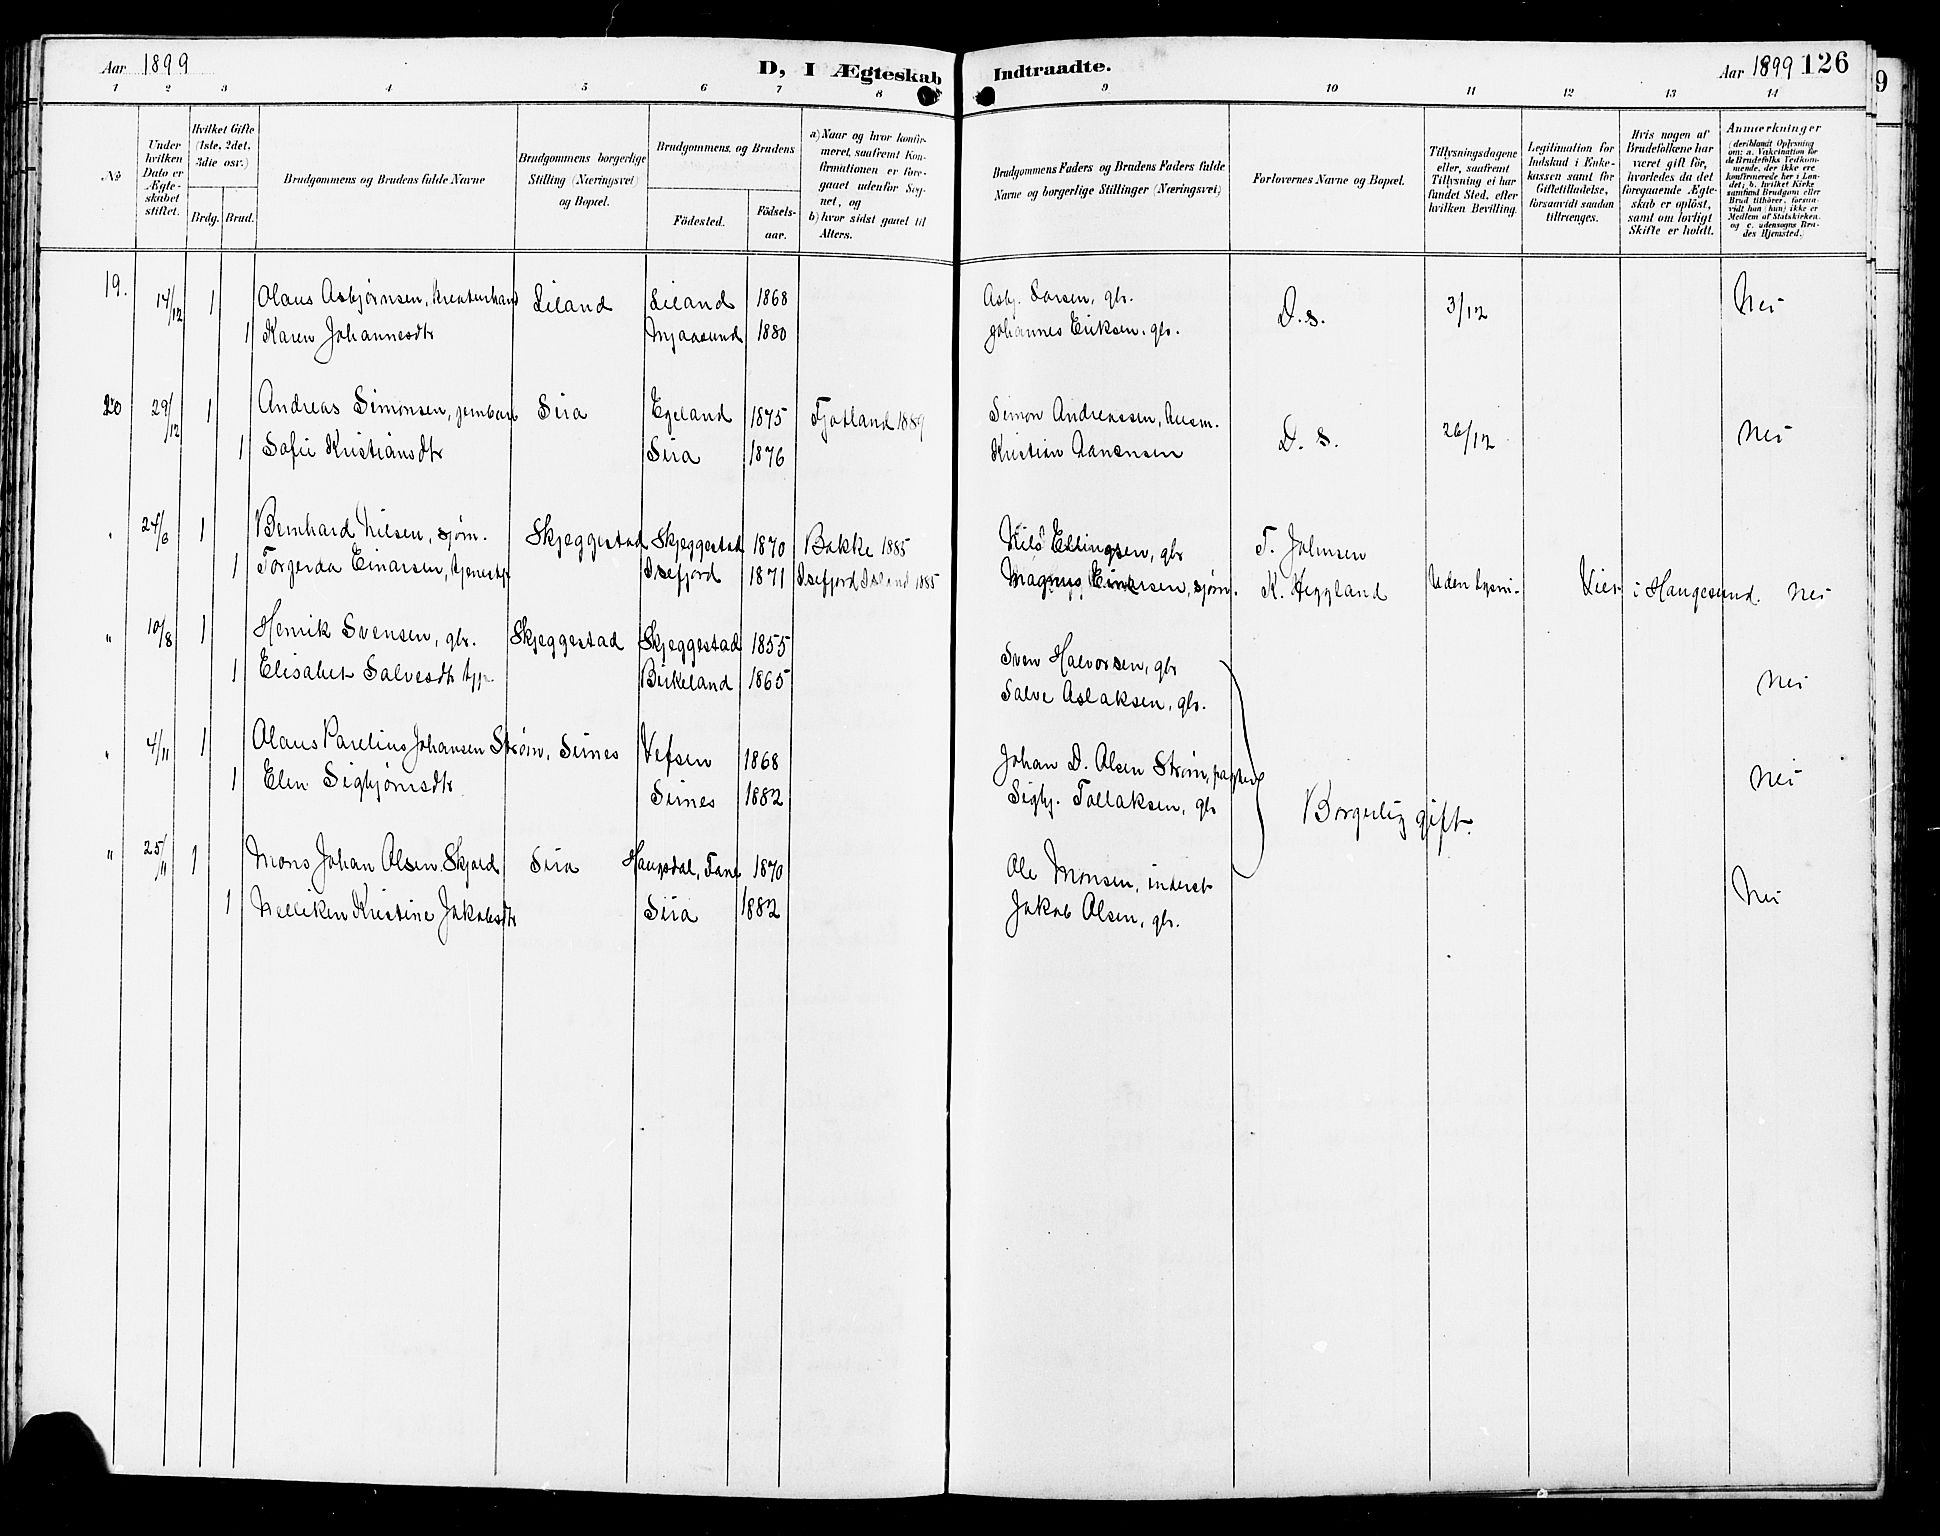 Aar 1899 D, I Ægteskab Indtraadte. Aar 1899 126
1 2 3 4 5 6 7 8 9 10 11 12 13 14
No
Under hvilken Dato er Ægteskabet stiftet.
Hvilket Gifte (1ste, 2det, 3die osv.)
Brdg. Brud.
Brudgommens og Brudens fulde Navne
Brudgommens borgerlige Stilling (Næringsvei) og Bopæl.
Brudgommens og Brudens
Födested. Födsels-aar.
a) Naar og hvor konfirmeret, saafremt Konfirmationen er foregaaet udenfor Sognet, og
b) hvor sidst gaaet til Alters.
Brudgommens Faders og Brudens Faders fulde Navne og borgerlige Stillinger (Næringsvei)
Forlovernes Navne og Bopæl.
Tillysningsdagene eller, saafremt Tillysning ei har fundet Sted, efter hvilken Bevilling.
Legitimation for Indskud i Enkekassen samt for Giftetilladelse, forsaavidt saadan tiltrænges.
Hvis nogen af Brudefolkene har været gift för, hvorledes da det foregaaende Ægteskab er oplöst, samt om lovligt Skifte er holdt.
Anmerkninger (deriblandt Oplysning om: a. Vakcination for de Brudefolks Vedkommende, der ikke ere konfirmerede her i Landet; b. hvilket Kirkesamfund Brudgom eller Brud tilhörer, forsaavidt han (hun) ikke er Medlem af Statskirken, og c. udensogns Brudes Hjemsted.)
19. 14/12 1 Olaus Asbjørnsen, Liland Liland 1868 Asbj. Larsen, gbr. D.s. 3/12 Nei
1 Karen Johannesdtr Mjaasund 1880 Johannes Eriksen, gbr.
20 29/12 1 Andreas Simonsen, jernban Sira Egeland 1875 Fjotland 1889 Simon Andreassen, husm. D. s. 26/12 Nei
1 Sofie Kristiansdtr Sira 1876 Kristian Aanensen
" 24/6 1 Bernhard Nilsen, sjøm. Skjeggestad Skjeggestad 1870 Bakke 1885 Nils Ellingsen, gbr T. Johnsen
1 Torgerda Einarsen, tjenestp Isefjord 1871 Isefjord Island 1885 Magnus Einarsen, sjøm. K. Heggland Uden lysni. Viet i Haugesund. Nei
" 10/8 1 Henrik Svensen, gbr. Skjeggestad Skjeggestad 1855 Sven Halvorsen, gbr
1 Elisabet Salvesdtr Birkeland 1865 Salve Aslaksen, gbr. Nei
" 4/11 1 Olaus Parelius Johansen Strøm, Sirnes Vefsen 1868 Johan D. Olsen Strøm, Nei
1 Elen Sigbjørnsdtr Sirnes 1882 Sigbj. Tollaksen, gbr Borgerlig gift.
" 25/11 1 Mons Johan Olsen Skjold Sira Haugsdal, Fane 1870 Ole Monsen, inderst Nei
1 Nelliken Kristine Jakobsdtr Sira 1882 Jakob Olsen, gbr.
9